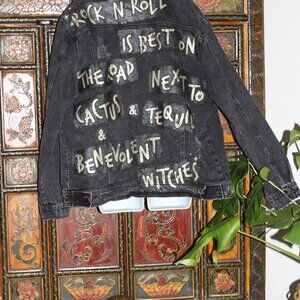 ROCK N ROLL
IS BEST ON
THE ROAD NEXT TO
CACTUS & TEQUILA
& BENEVOLENT
WITCHES